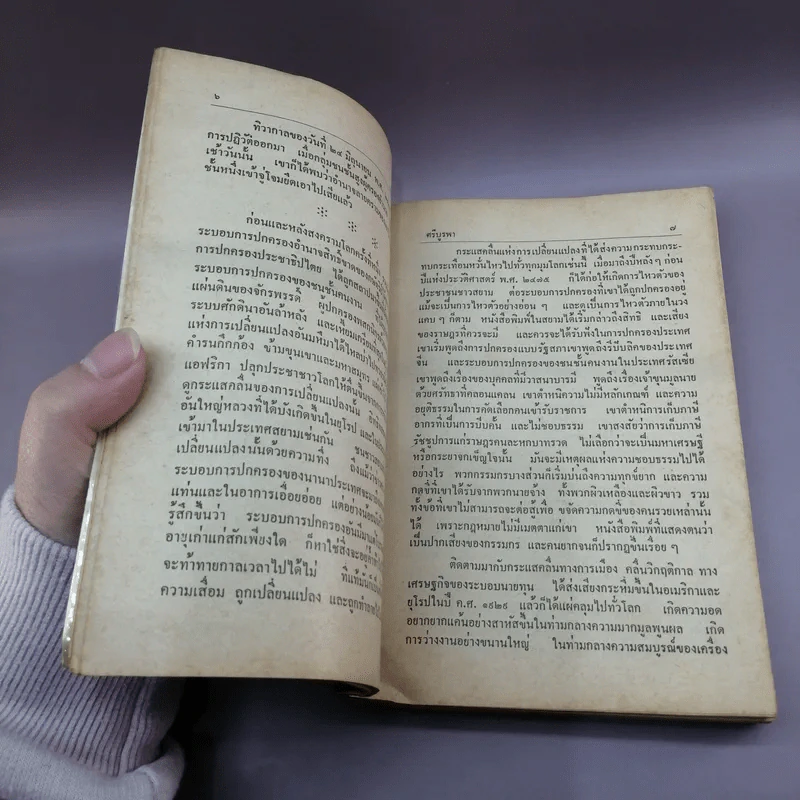 ๖
ทิวากาลของวันที่ ๒๔ มิถุนายน
การปฏิวัติออกมา เมื่อกลุ่มชนชั้นสูงผู้ครอง
เช้าวันนั้น เขาก็ได้พบว่าอำนาจ
ชั้นหนึ่งเข้าจู่โจมยึดเอาไปเสียแล้ว
ก่อนและหลังสงครามโลกครั้งที่หนึ่ง
ระบอบการปกครองอำนาจสิทธิ์ขาดของ
การปกครองประชาธิปไตย ได้ถูกสถาปนา
ระบอบการปกครองของชนชั้นคนงาน
แผ่นดินของจักรพรรดิ์ ผู้ปกครอง
ระบบศักดินาอันล้าหลัง และเหี้ยมเกรียม
แห่งการเปลี่ยนแปลงอันมหึมาได้ไหลบ่าไป
คำรนกึกก้อง ข้ามขุนเขาและมหาสมุทร
แอฟริกา ปลุกประชาชาวโลกให้ตื่นขึ้น
ดูกระแสคลื่นของการเปลี่ยนแปลงนั้น
อันใหญ่หลวงที่ได้บังเกิดขึ้นในยุโรป
เข้ามาในประเทศสยามเช่นกัน
เปลี่ยนแปลงนั้นด้วยความทึ่ง ถึงแม้ว่า
ระบอบการปกครองของนานาประเทศ
แท่นและในอาการเอื่อยอ่อย แต่อย่างน้อย
รู้สึกขึ้นว่า ระบอบการปกครองอันมีมา
อายุเก่าแก่สักเพียงใด ก็หาใช่สิ่งจะอยู่
จะท้าทายกาลเวลาไปได้ไม่ ที่แท้มันก็
ความเสื่อม ถูกเปลี่ยนแปลง และถูกทำลาย
ศรีบูรพา ๗
กระแสคลื่นแห่งการเปลี่ยนแปลงที่ได้ส่งความกระทบกระ-
ทบกระเทือนหวั่นไหวไปทั่วทุกมุมโลกเช่นนี้ เมื่อมาถึงปีหลัง ๆ ก่อน
ปีแห่งประวัติศาสตร์ พ.ศ. ๒๔๗๕ ก็ได้ก่อให้เกิดการไหวตัวของ
ประชาชนชาวสยาม ต่อระบอบการปกครองที่เขาได้ถูกปกครองอยู่
แม้จะเป็นการไหวตัวอย่างอ่อน ๆ และดูเป็นการไหวตัวภายในวง
แคบ ๆ ก็ตาม หนังสือพิมพ์ในสยามได้เริ่มกล่าวถึงสิทธิ และเสียง
ของราษฎรที่ควรจะมี และควรจะได้รับฟังในการปกครองประเทศ
เขาเริ่มพูดถึงการปกครองแบบรัฐสภาเขาพูดถึงรีปับลิคของประเทศ
จีน และระบอบการปกครองของชนชั้นคนงานในประเทศรัสเซีย
เขาพูดถึงเรื่องของบุคคลที่มีวาสนาบารมี พูดถึงเรื่องเจ้าขุนมูลนาย
ด้วยศรัทธาที่คลอนแคลน เขาตำหนิความไม่มีหลักเกณฑ์ และความ
อยุติธรรมในการคัดเลือกคนเข้ารับราชการ เขาตำหนิการเก็บภาษี
อากรที่เป็นการบีบคั้น และไม่ชอบธรรม เขาสงสัยว่าการเก็บภาษี
รัชชูปการแก่ราษฎรคนละหกบาทรวด ไม่เลือกว่าจะเป็นมหาเศรษฐี
หรือกระยาจกเข็ญใจนั้น มันจะมีเหตุผลแห่งความชอบธรรมไปได้
อย่างไร พวกกรรมกรบางส่วนก็เริ่มบ่นถึงความทุกข์ยาก และความ
กดขี่ที่เขาได้รับจากพวกนายจ้าง ทั้งพวกผิวเหลืองและผิวขาว รวม
ทั้งข้อที่เขาไม่สามารถจะต่อสู้เพื่อ ขจัดความกดขี่ของคนรวยเหล่านั้น
ได้ เพราะกฎหมายไม่มีเมตตาแก่เขา หนังสือพิมพ์ที่แสดงตนว่า
เป็นปากเสียงของกรรมกร และคนยากจนก็ปรากฏขึ้นเรื่อย ๆ
ติดตามมากับกระแสคลื่นทางการเมือง คลื่นวิกฤติกาล ทาง
เศรษฐกิจของระบอบนายทุน ได้ส่งเสียงกระหึ่มขึ้นในอเมริกาและ
ยุโรปในปี ค.ศ. ๑๙๒๙ แล้วก็ได้แผ่คลุมไปทั่วโลก เกิดความอด
อยากยากแค้นอย่างสาหัสขึ้นในท่ามกลางความมากมูลพูนผล เกิด
การว่างงานอย่างขนานใหญ่ ในท่ามกลางความสมบูรณ์ของเครื่อง